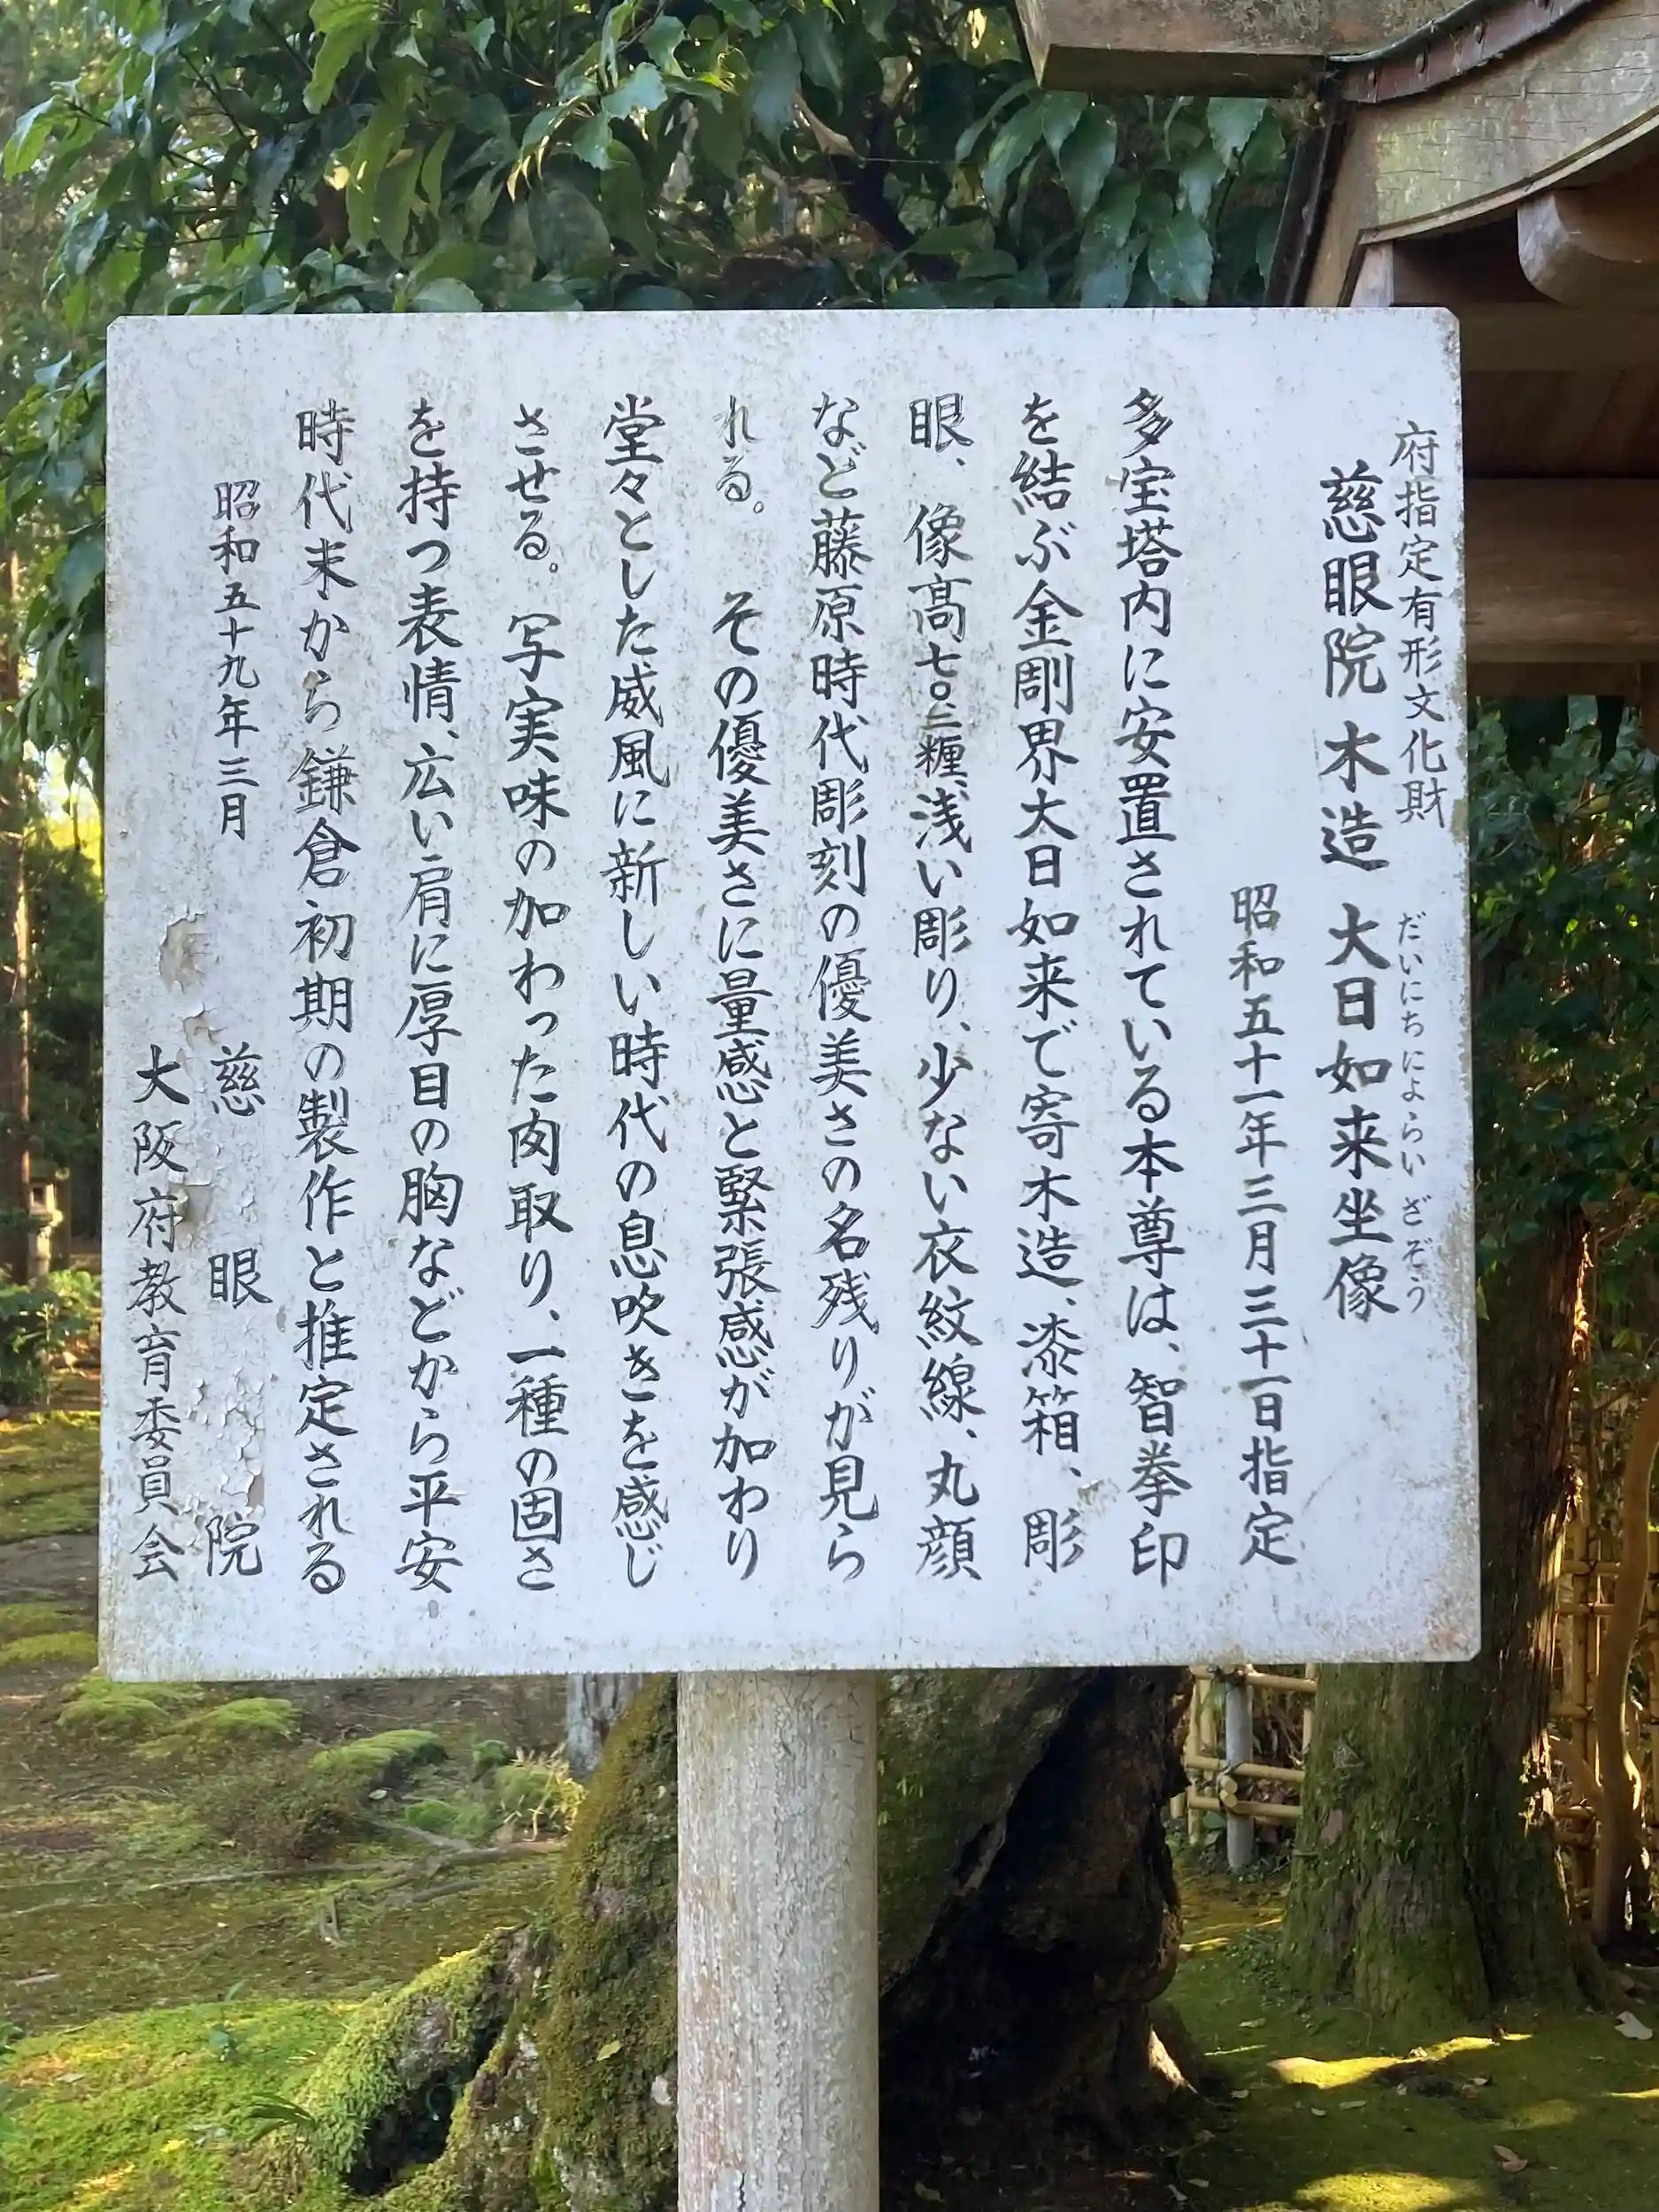 府指定有形文化財
慈眼院 木造 大日如来坐像
だいにちによらい ざぞう
昭和五十一年三月三十一日指定
多宝塔内に安置されている本尊は、智拳印
を結ぶ金剛界大日如来で寄木造、漆箔、彫
眼、像高七〇.二糎、浅い彫り、少ない衣紋線、丸顔
など藤原時代彫刻の優美さの名残りが見ら
れる。 その優美さに量感と緊張感が加わり
堂々とした威風に新しい時代の息吹きを感じ
させる。写実味の加わった肉取り、一種の固さ
を持つ表情、広い肩に厚目の胸などから平安
時代末から鎌倉初期の製作と推定される
昭和五十九年三月
慈眼院
大阪府教育委員会